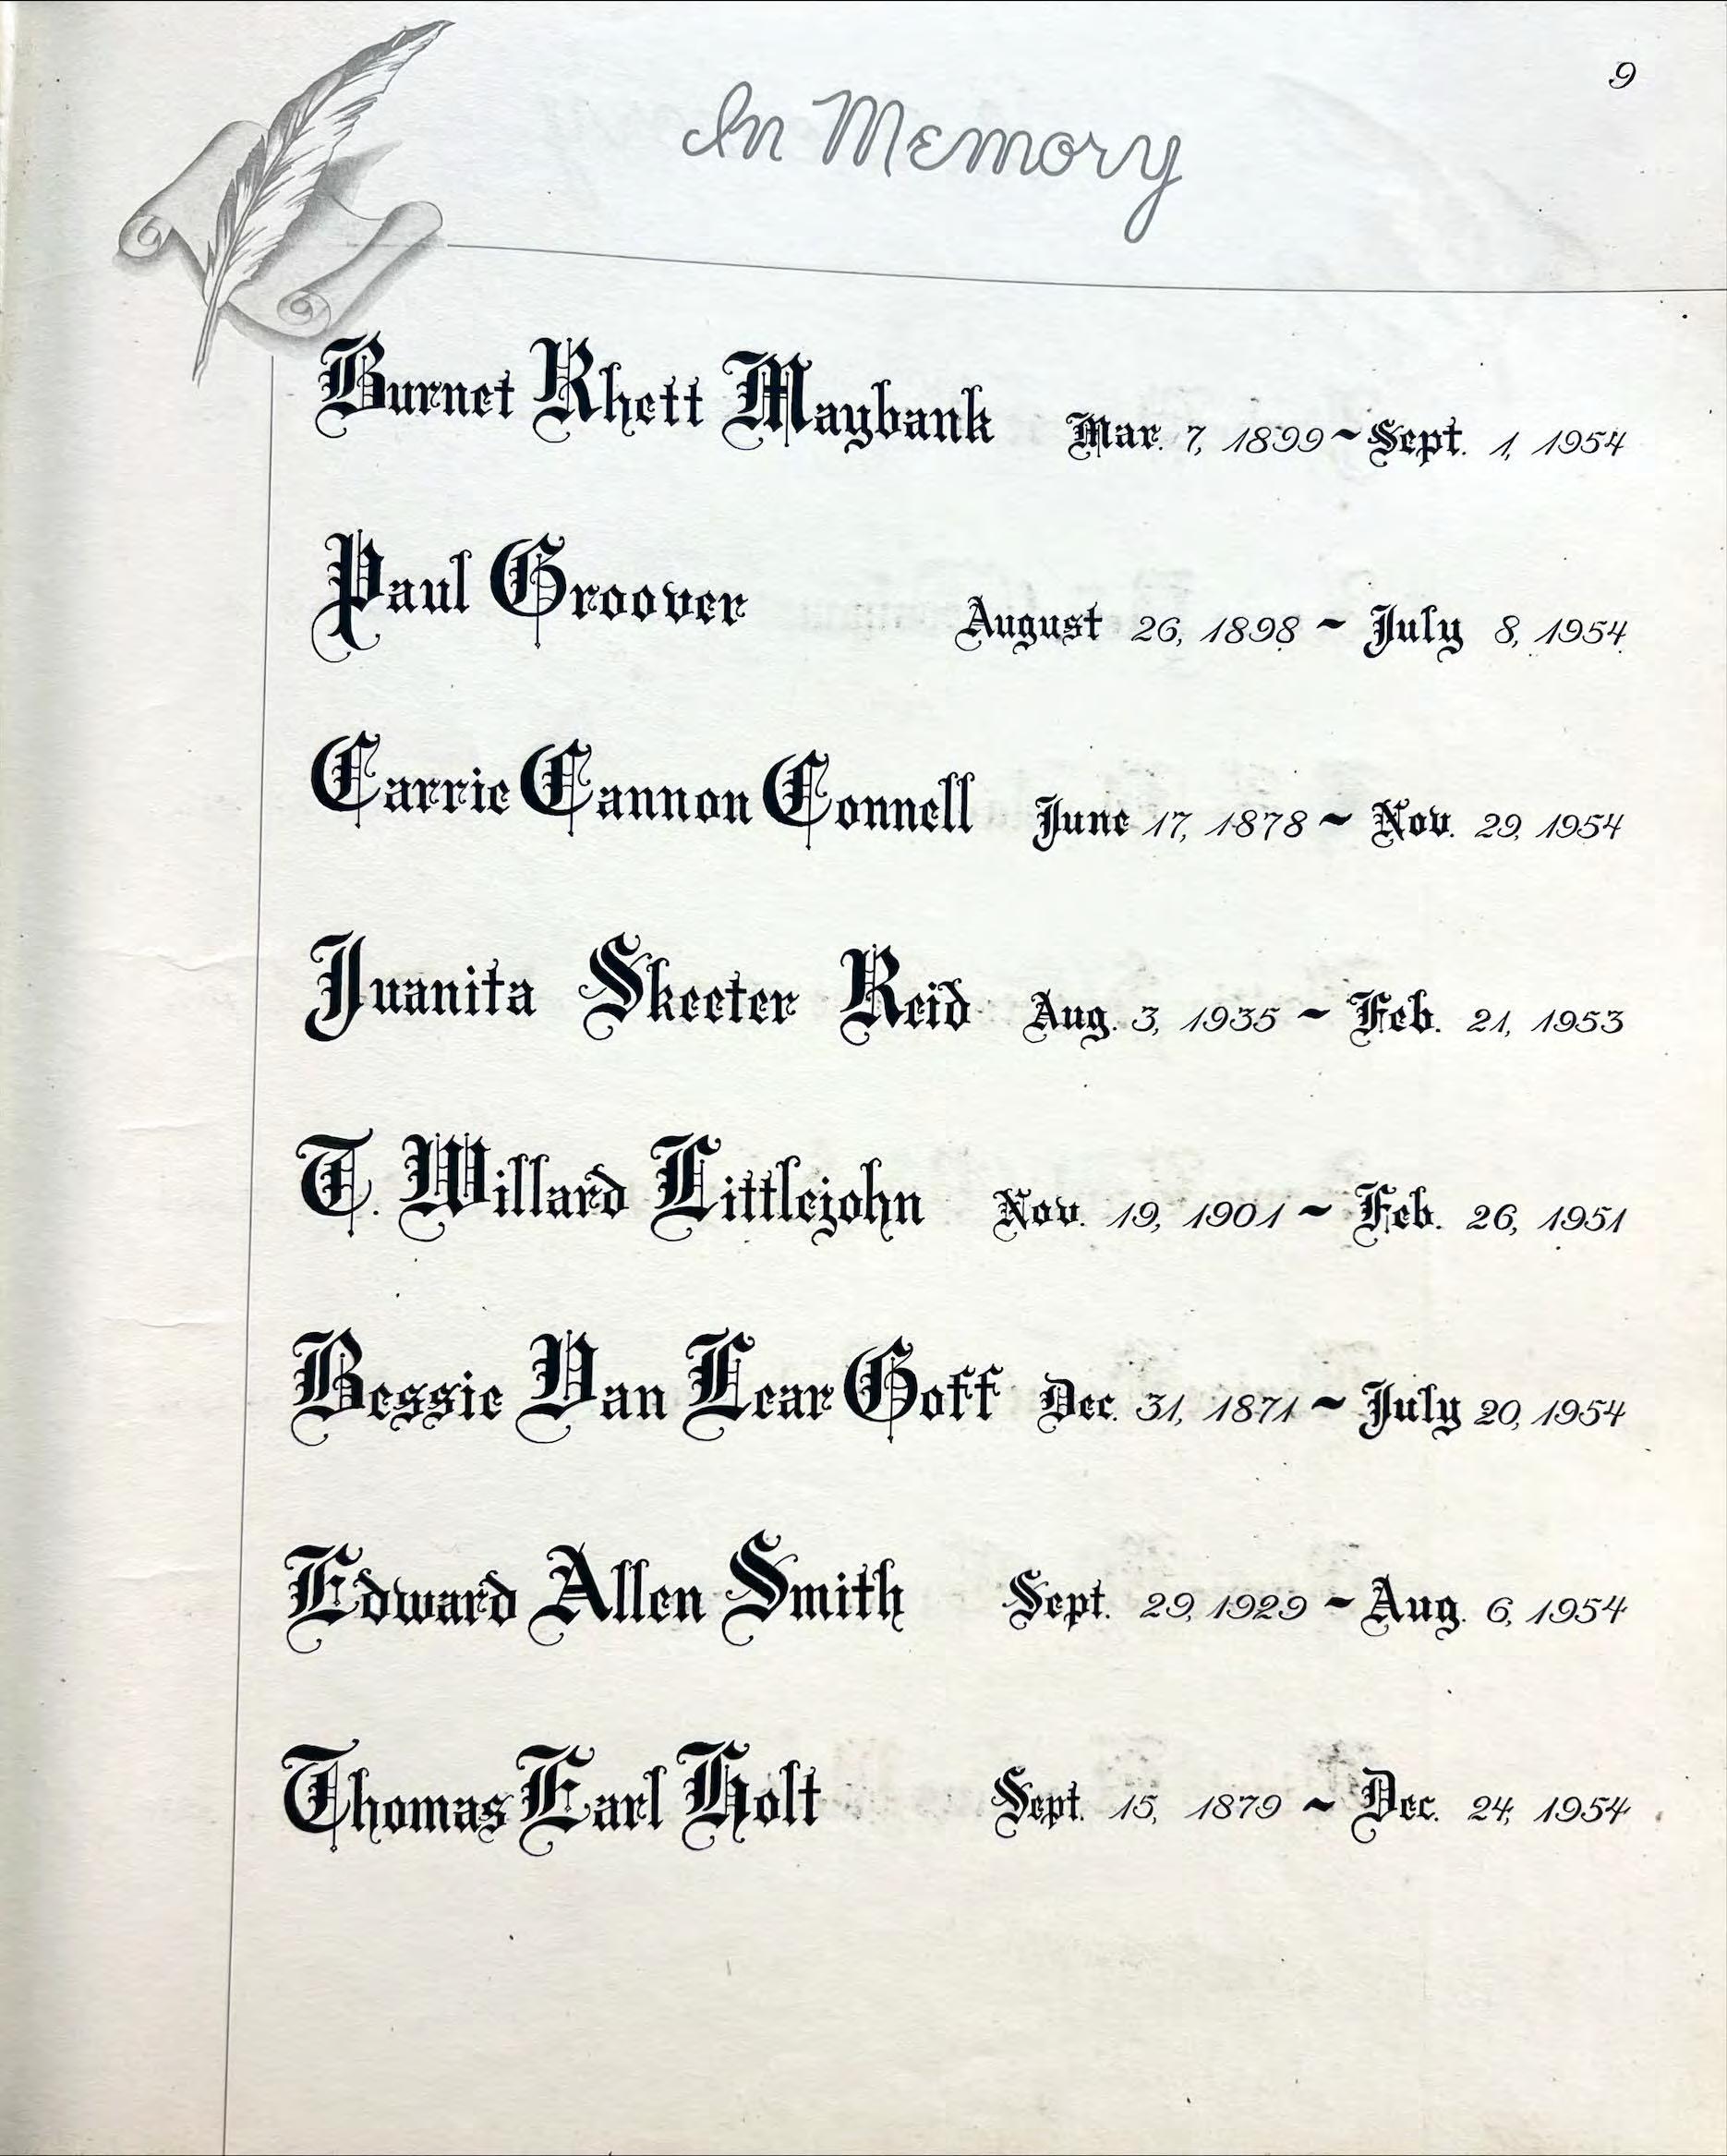 9
In Memory
Burnet Rhett Maybank Mar. 7, 1899 ~ Sept. 1, 1954
Paul Groover August 26, 1898 ~ July 8, 1954
Carrie Cannon Connell June 17, 1878 ~ Nov. 29, 1954
Juanita Skeeter Reid Aug. 3, 1935 ~ Feb. 21, 1953
T. Willard Littlejohn Nov. 19, 1901 ~ Feb. 26, 1951
Bessie Van Lear Goff Dec. 31, 1871 ~ July 20, 1954
Edward Allen Smith Sept. 29, 1929 ~ Aug. 6, 1954
Thomas Earl Holt Sept. 15, 1879 ~ Dec. 24, 1954